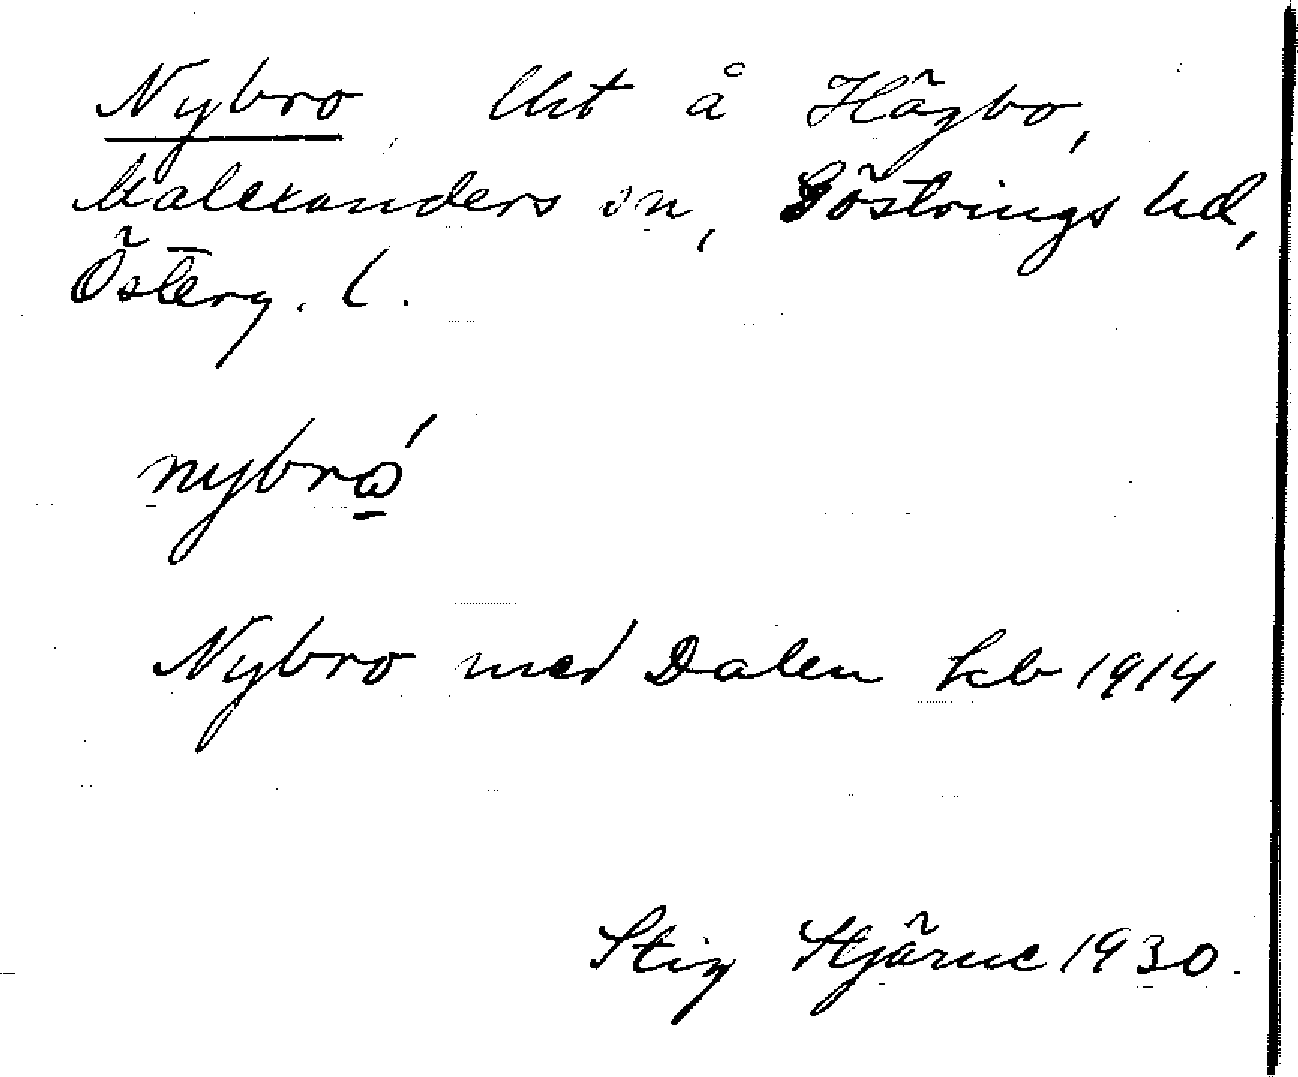 Nybro, lht å Hägbo,
Malexanders sn, Göstrings hd,
Österg. l.
nybrώ̱
Nybro med Dalen kb 1914
Stig Hjärne 1930.